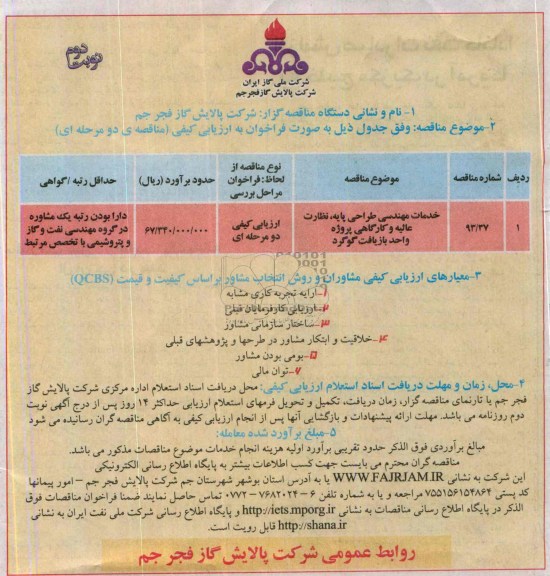 نوبت دوم
شرکت ملی گاز ایران
شرکت پالایش گاز فجر جم
۱- نام و نشانی دستگاه مناقصه گزار: شرکت پالایش گاز فجر جم
۲-موضوع مناقصه: وفق جدول ذیل به صورت فراخوان به ارزیابی کیفی (مناقصه ی دو مرحله ای)
ردیف	شماره مناقصه	موضوع مناقصه	نوع مناقصه از لحاظ: فراخوان مراحل بررسی	حدود برآورد (ریال)	حداقل رتبه /گواهی
۱	۹۳/۳۷	خدمات مهندسی طراحی پایه، نظارت عالیه و کارگاهی پروژه واحد بازیافت گوگرد	ارزیابی کیفی دو مرحله ای	۶۷/۳۴۰/۰۰۰/۰۰۰	دارا بودن رتبه یک مشاوره در گروه مهندسی نفت و گاز و پتروشیمی با تخصص مرتبط
۳-معیارهای ارزیابی کیفی مشاوران و روش انتخاب مشاور براساس کیفیت و قیمت (QCBS)
۱-ارایه تجربه کاری مشابه
۲-ارزیابی کارفرمایان قبلی
۳-ساختار سازمانی مشاور
۴-خلاقیت و ابتکار مشاور در طرحها و پژوهشهای قبلی
۵-بومی بودن مشاور
۶-توان مالی
۴-محل، زمان و مهلت دریافت اسناد استعلام ارزیابی کیفی: محل دریافت اسناد استعلام اداره مرکزی شرکت پالایش گاز
فجر جم یا تارنمای مناقصه گزار، زمان دریافت، تکمیل و تحویل فرمهای استعلام ارزیابی حداکثر ۱۴ روز پس از درج آگهی نوبت
دوم روزنامه می باشد. مهلت ارائه پیشنهادات و بازگشایی آنها پس از انجام ارزیابی کیفی به آگاهی مناقصه گران رسانیده می شود
۵-مبلغ برآورد شده معامله:
مبالغ برآوردی فوق الذکر حدود تقریبی برآورد اولیه هزینه انجام خدمات موضوع مناقصات مذکور می باشد.
مناقصه گران محترم می بایست جهت کسب اطلاعات بیشتر به پایگاه اطلاع رسانی الکترونیکی
این شرکت به نشانی WWW.FAJRJAM.IR یا به آدرس استان بوشهر شهرستان جم شرکت پالایش گاز فجر جم – امور پیمانها
کد پستی ۷۵۵۱۵۶۱۵۴۸۶۴ مراجعه و یا به شماره تلفن ۶ – ۷۶۸۲۰۲۴-۰۷۷۲ تماس حاصل نمایند ضمنا فراخوان مناقصات فوق
الذکر در پایگاه اطلاع رسانی مناقصات به نشانی http://iets.mporg.ir و پایگاه اطلاع رسانی شرکت ملی نفت ایران به نشانی
http://shana.ir قابل رویت است.
روابط عمومی شرکت پالایش گاز فجر جم